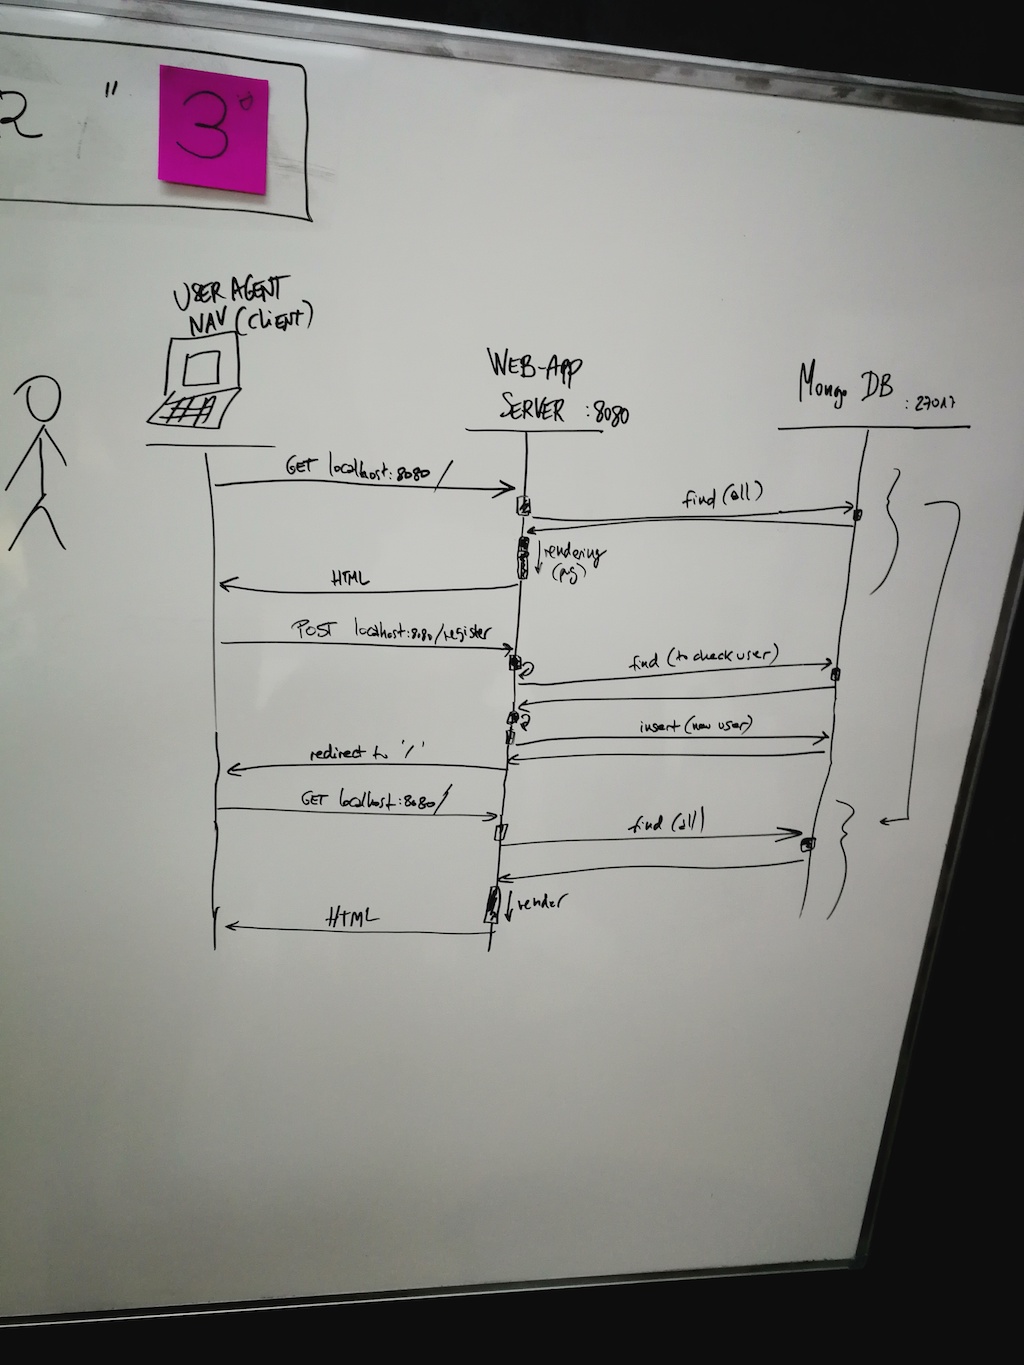 R "
3°
USER AGENT
NAV (CLIENT)
WEB-APP
SERVER :8080
Mongo DB :27017
GET localhost:8080/
find (all)
rendering
HTML
POST localhost:8080/register
find (to check user)
insert (new user)
redirect to '/'
GET localhost:8080/
find (all)
render
HTML